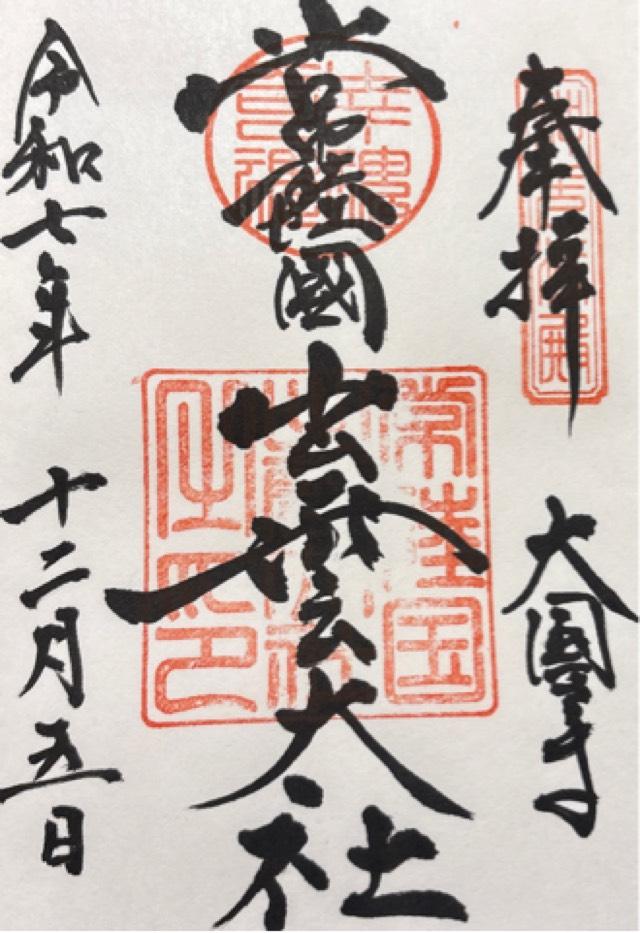 奉拝
大國主
常陸國
出雲大社
常陸国
之印
令和七年 十二月五日